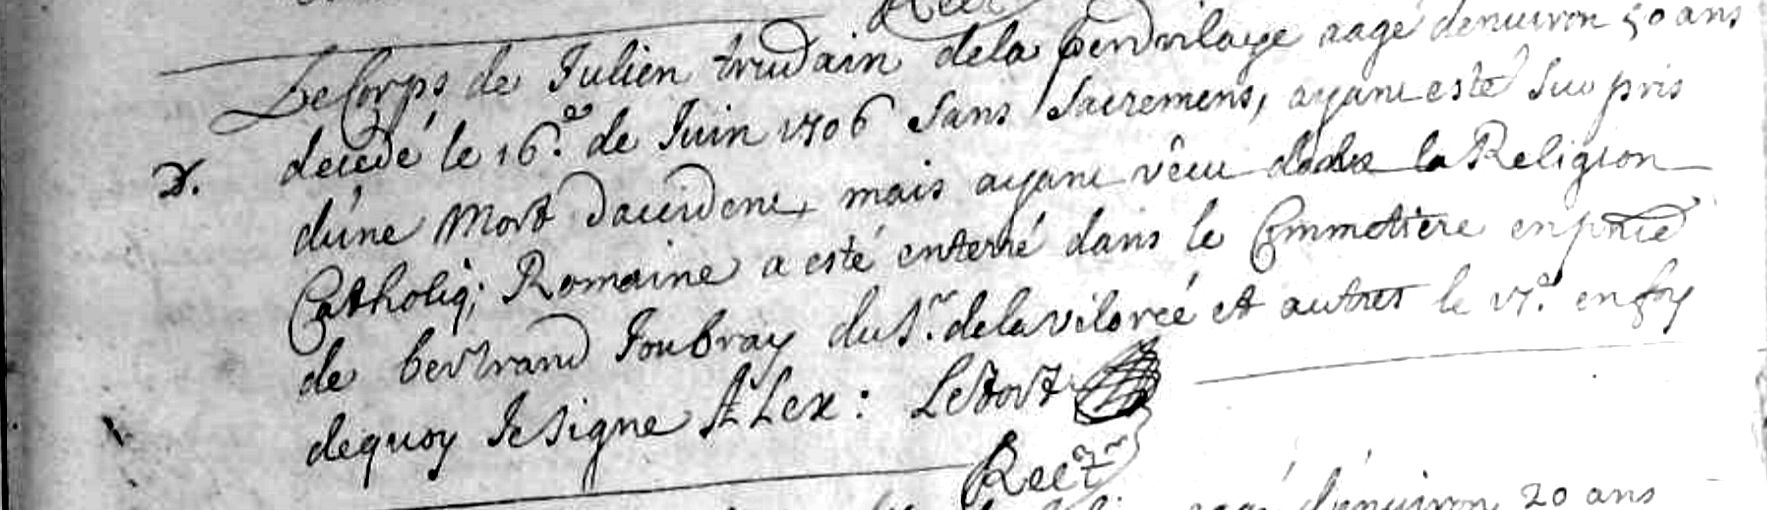 Rect
Le Corps de Julien trudain dela pendvilaye aagé denuiron 50 ans
D. decedé le 16.e de Juin 1706 sans sacremens, ayant esté surpris
d'une Mort d'accident, mais ayant vêcu dans la Religion
Catholiq; Romaine a esté enterré dans le Cimmetiere en pñce
de bertrand Joubray du Sr. dela viloreé et autres le 17.e en foy
dequoy Je signe Alex: Letort
Rectr
aagé d'enuiron 20 ans